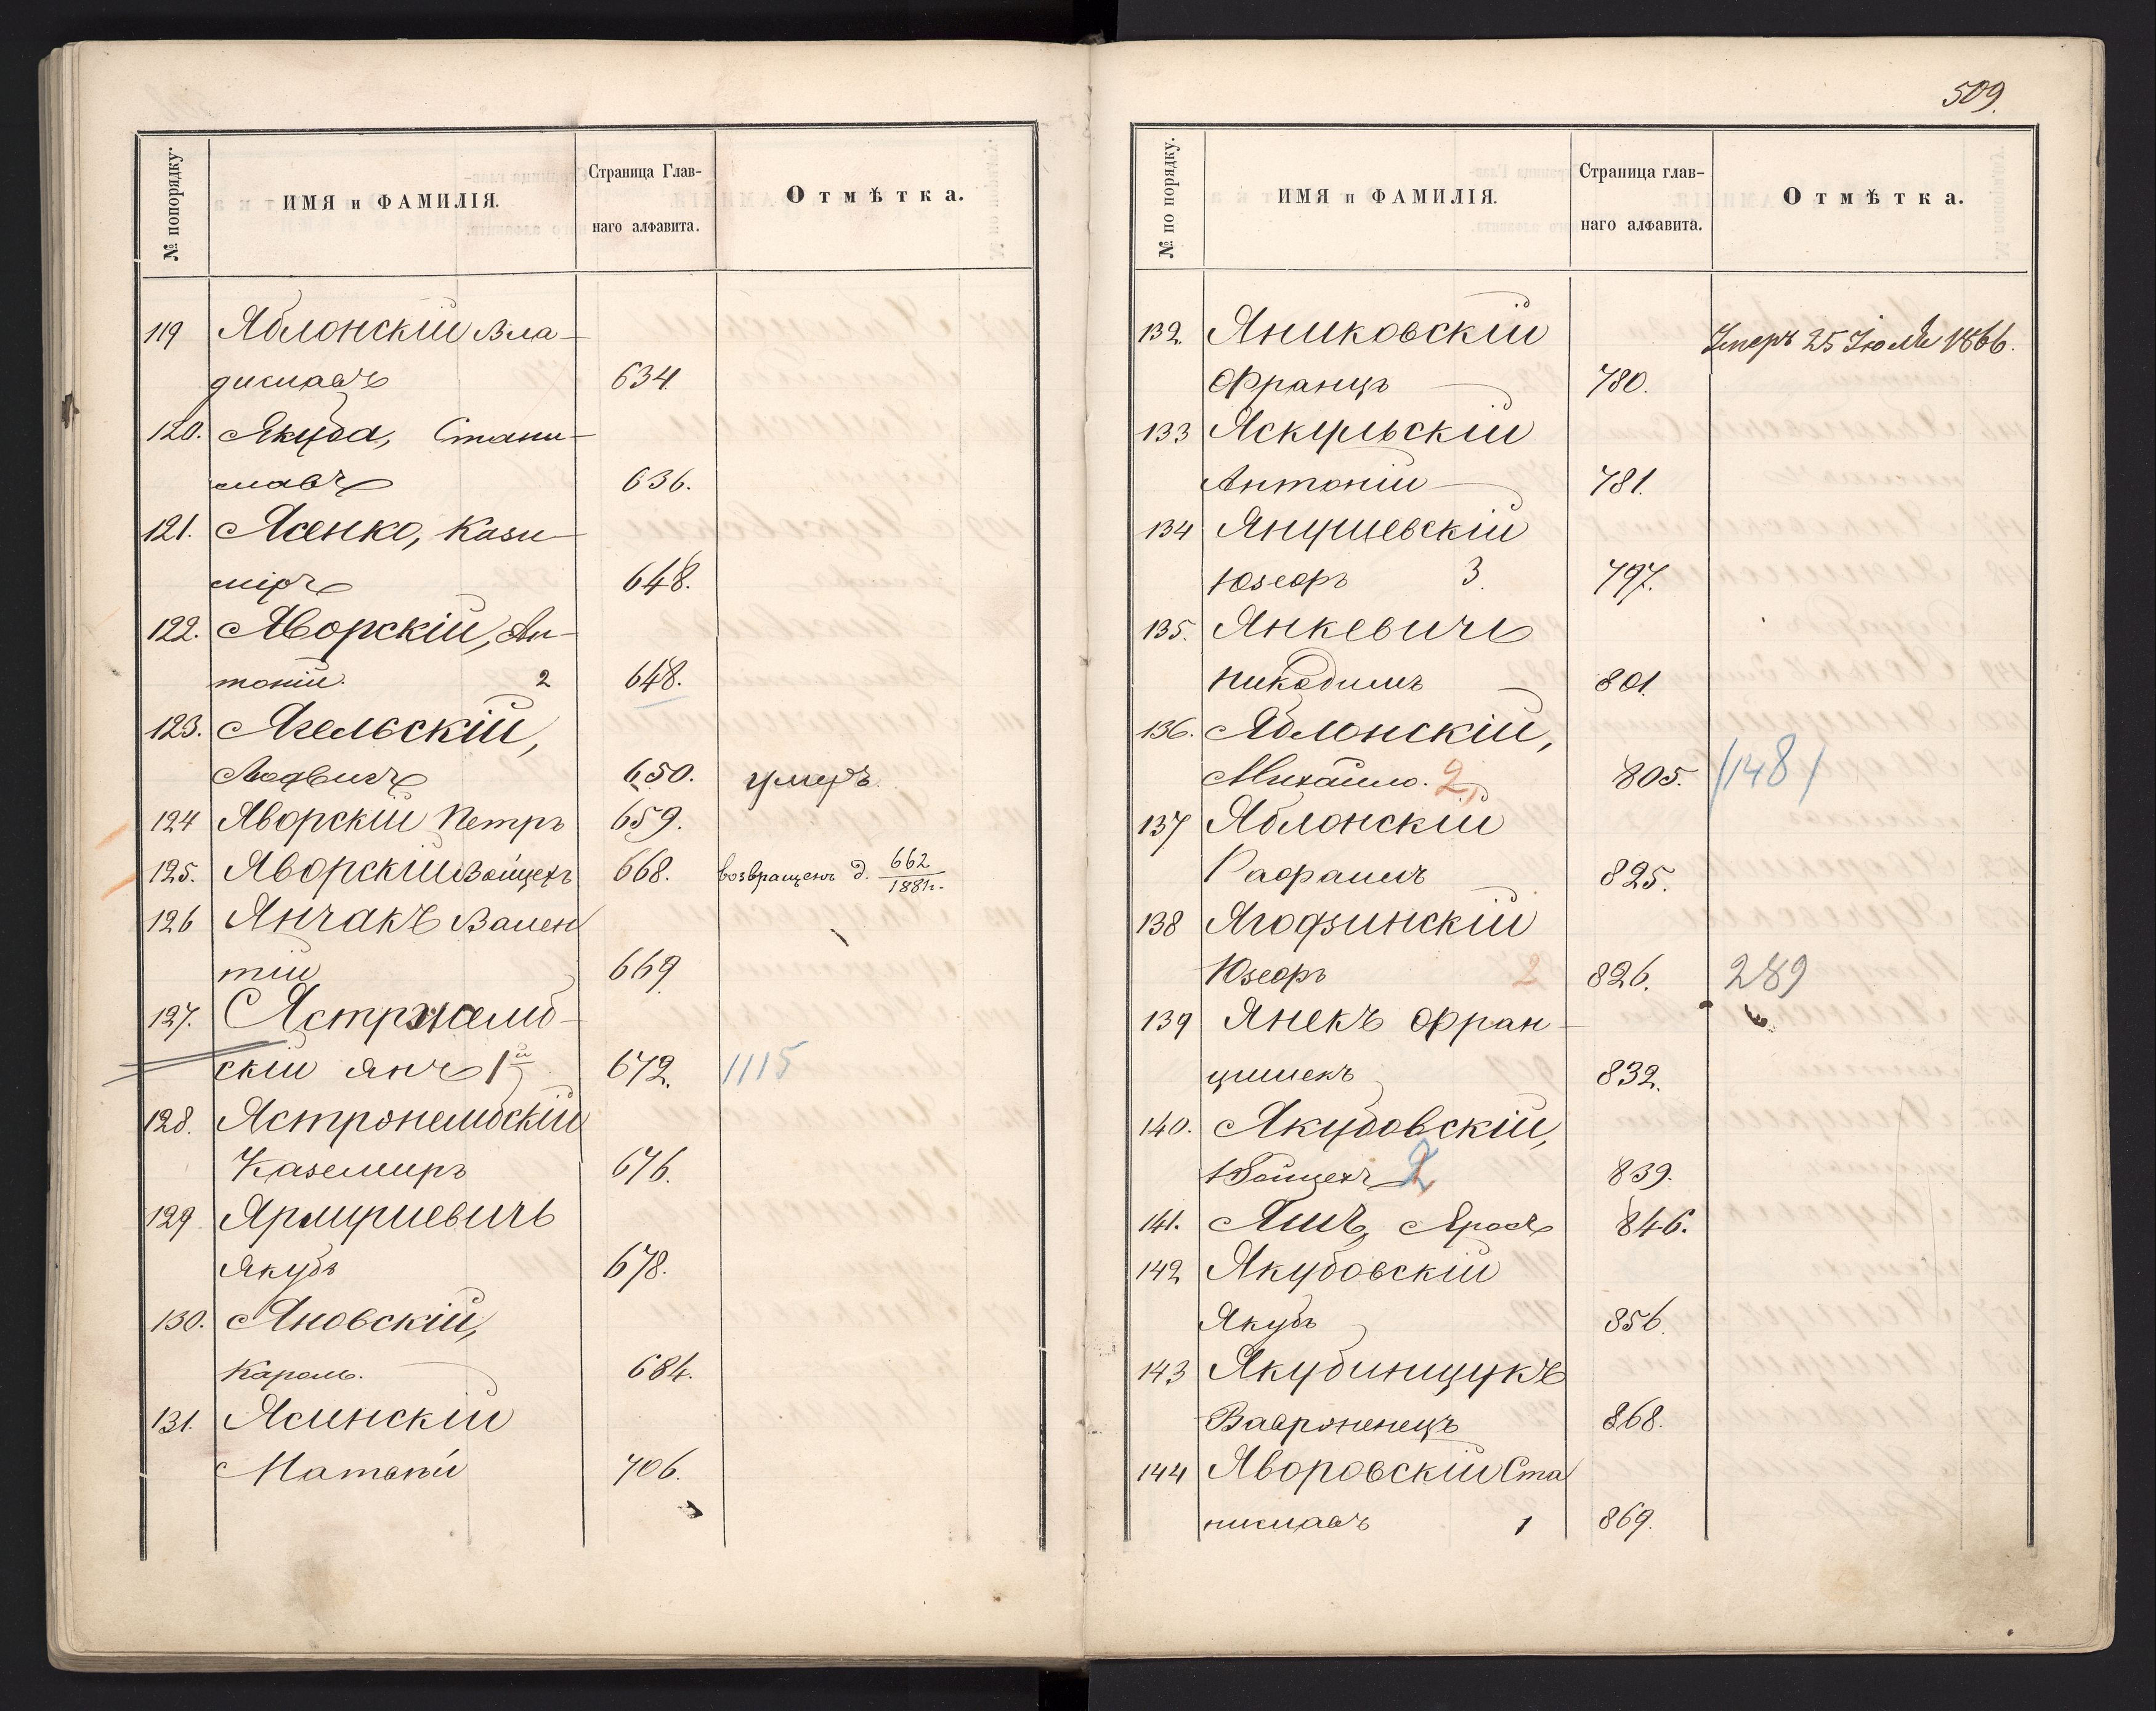 № попорядку.
ИМЯ и ФАМИЛІЯ.
Страница Глав-
наго алфавита.
Отмѣтка.
119 Яблонскій Вла-
диславъ 634
120. Якуба, Стани-
славъ 636.
121. Ясенко, Кази-
міръ 648.
122. Яворскій, Ан-
тоній. 2 648.
123. Ягельскій,
Людвигъ 650. умеръ.
124 Яворскій Петръ 659.
125. Яворскій Войцехъ 668. возвращенъ д. 662/1881г.
126 Янчакъ Вален
тій 669
127. Ястржемб-
скій Янъ 1й 672. 1115
128. Ястржембскій
Каземиръ 676.
129 Ярмушевичъ
Якубъ 678.
130. Яновскій,
Кароль. 684.
131. Ясинскій
Матвѣй 706.
509.
№ по порядку.
ИМЯ и ФАМИЛІЯ.
Страница глав-
наго алфавита.
Отмѣтка.
132. Яниковскій Умеръ 25 Іюля 1866.
Францъ 780.
133 Яскульскій
Антоній 781.
134 Янушевскій
Юзефъ 3. 797.
135. Янкевичъ
Никодимъ 801.
136. Яблонскій,
Михайло. 2, 805. /148/
137 Яблонскій
Рафаилъ 825.
138 Ягодзинскій
Юзефъ 2 826. 289
139 Янекъ Фран-
цишекъ 832.
140. Якубовскій,
Войцехъ 2 839.
141. Яшъ, 846.
142 Якубовскій
Якубъ 856.
143 Якубинщукъ
Вавроненецъ 868.
144 Яворовскій Ста
ниславъ 1 869.